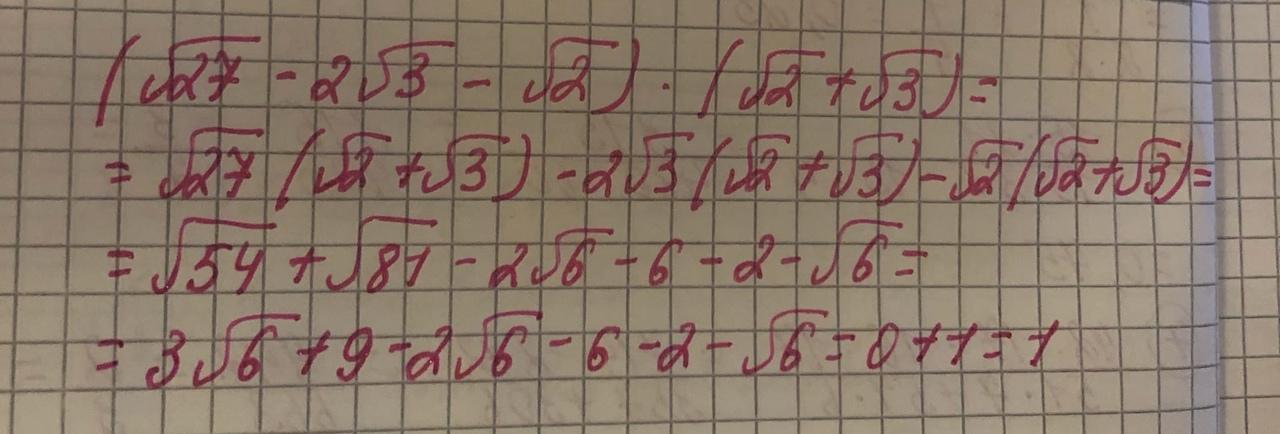 (√27 - 2√3 - √2) · (√2 + √3) =
= √27 (√2 + √3) - 2√3 (√2 + √3) - √2 (√2 + √3) =
= √54 + √81 - 2√6 - 6 - 2 - √6 =
= 3√6 + 9 - 2√6 - 6 - 2 - √6 = 0 + 1 = 1